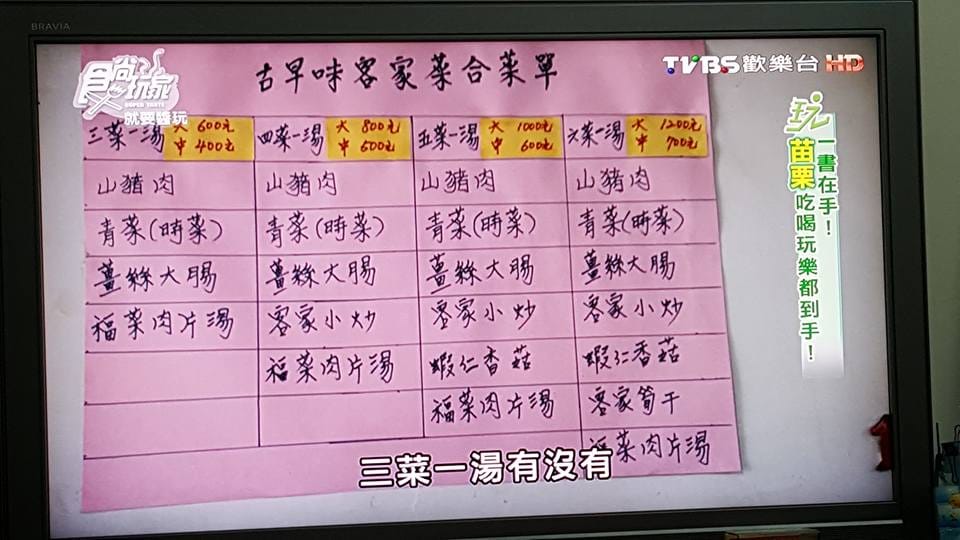 BRAVIA
食尚玩家
SUPER TASTE
就要醬玩
TVBS歡樂台 HD
古早味客家菜合菜單
三菜一湯 大 600元 中 400元
四菜一湯 大 800元 中 500元
五菜一湯 大 1000元 中 600元
六菜一湯 大 1200元 中 700元
山豬肉 山豬肉 山豬肉 山豬肉
青菜(時菜) 青菜(時菜) 青菜(時菜) 青菜(時菜)
薑絲大腸 薑絲大腸 薑絲大腸 薑絲大腸
福菜肉片湯 客家小炒 客家小炒 客家小炒
福菜肉片湯 蝦仁香菇 蝦仁香菇
福菜肉片湯 客家筍干
福菜肉片湯
玩
一書在手！
苗栗吃喝玩樂都到手！
三菜一湯有沒有